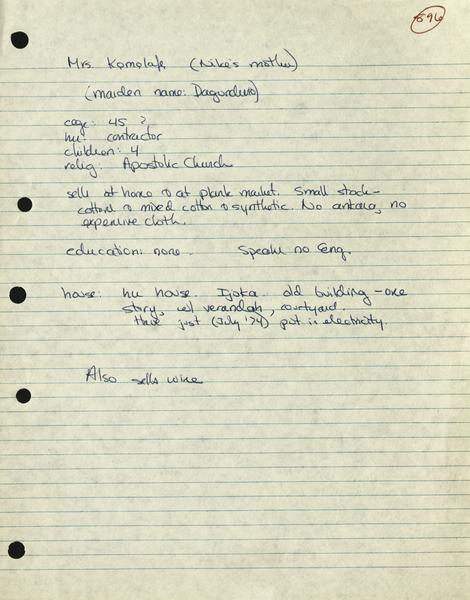 896
Mrs. Komolafe (Nike's mother)
(maiden name: Dagunduro)
age: 45 ?
hu: contractor
children: 4
relig: Apostolic Church
sells at home & at plank market. Small stock -
cotton & mixed cotton & synthetic. No ankara, no
expensive cloth.
education: none. Speaks no Eng.
house: hu house. Ijoka. old building - one
story, w/ verandah, courtyard.
Have just (July '74) put in electricity.
Also sells wine